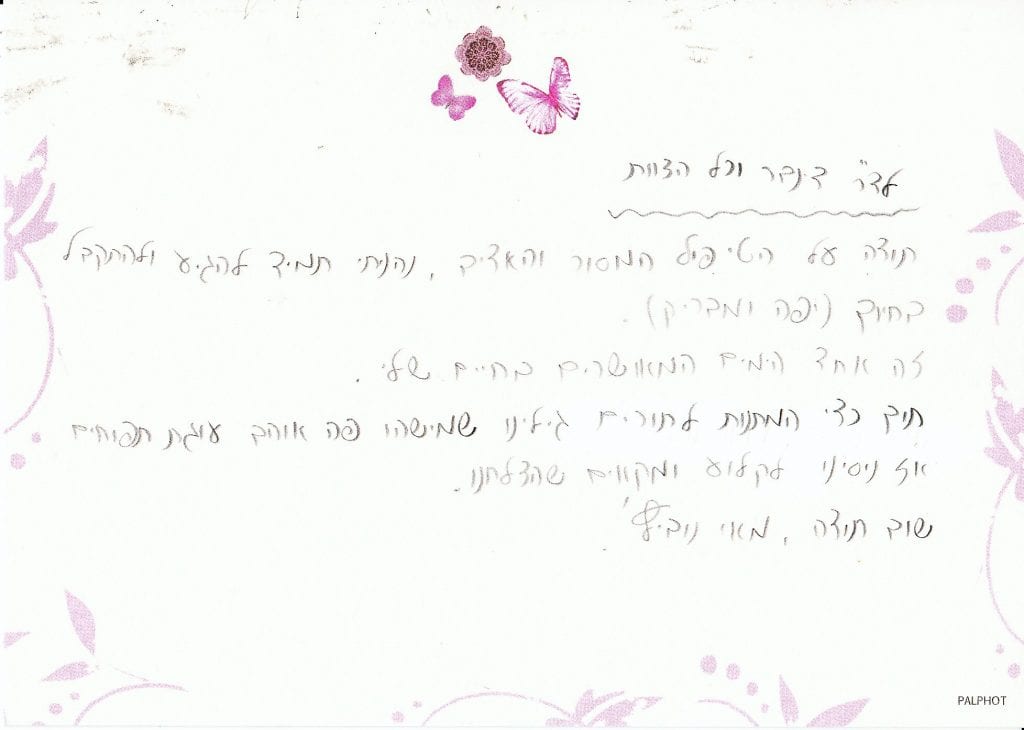 לדר' דינבר וכל הצוות
תודה על הטיפול המסור והאדיב, נהניתי תמיד להגיע ולהתקבל
בחיוך (יפה ומבריק).
זה אחד הימים המאושרים בחיים שלי.
תוך כדי המתנות לתורים גילינו שמישהו פה אוהב עוגת תפוחים
אז ניסינו לקלוע ומקווים שהצלחנו.
שוב תודה, מאי
PALPHOT